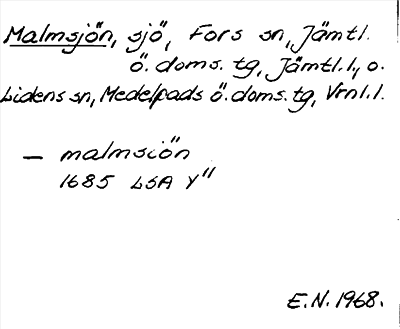 Malmsjön, sjö, Fors sn, Jämtl.
ö. doms. tg, Jämtl. l., o.
Lidens sn, Medelpads ö. doms. tg, Vrnl. l.
— malmsiön
1685 LSA Y"
E.N. 1968.